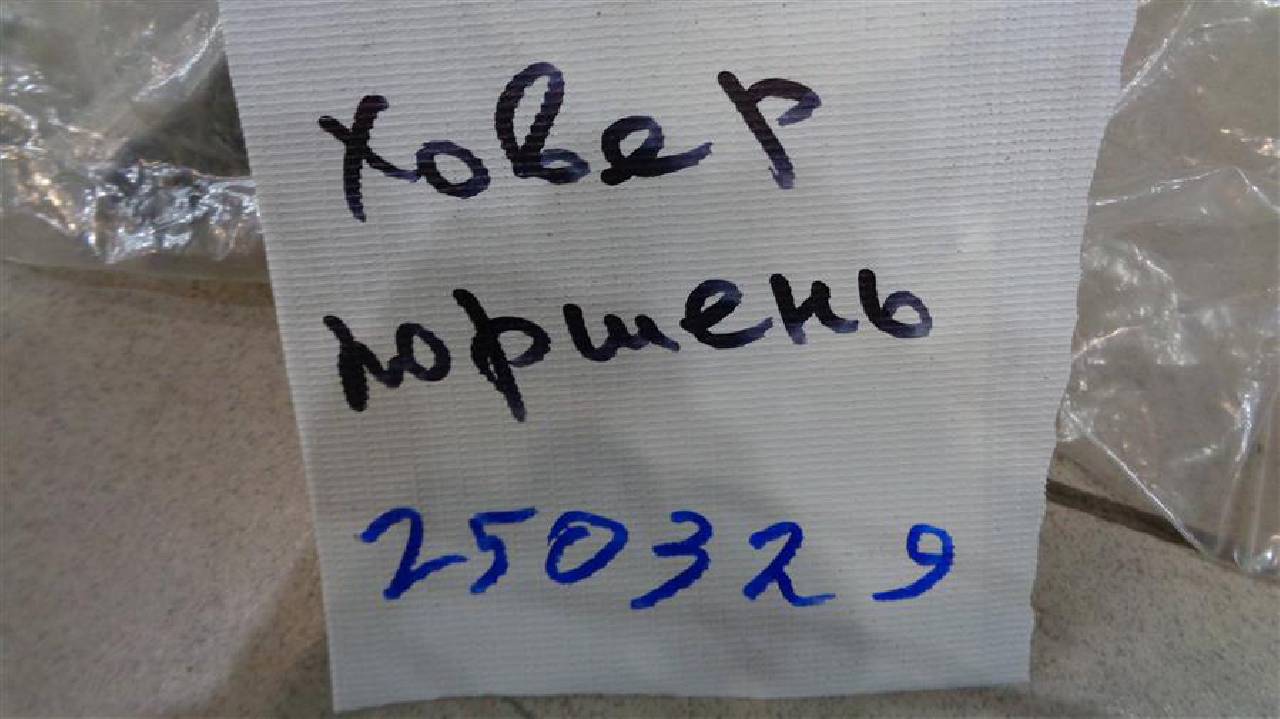 Ховер
поршень
250329